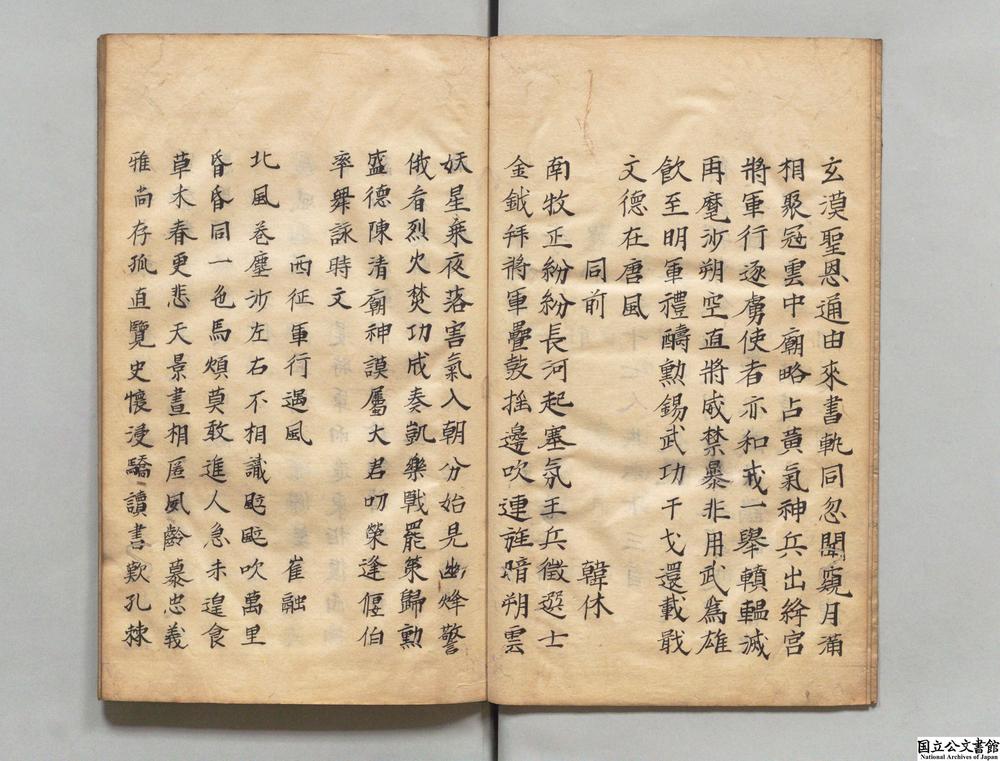 玄漠聖恩通由來書軌同忽聞窺月滿
相聚冠雲中廟略占黃氣神兵出絳宮
將軍行逐虜使者亦和戎一舉轒輼滅
再麾沙朔空直將威禁暴非用武為雄
飲至明軍禮疇勲錫武功干戈還載戢
文德在唐風
同前 韓休
南牧正紛紛長河起塞氛王兵徵選士
金鉞拜將軍疊鼓揺邊吹連旌暗朔雲
妖星乗夜落害氣入朝分始見幽烽警
俄看烈火焚功成奏凱樂戰罷策歸勲
盛德陳清廟神謨屬大君叨榮逢偃伯
率舞詠時文
西征軍行遇風 崔融
北風巻塵沙左右不相識颭颭吹萬里
昏昏同一色馬煩莫敢進人急未遑食
草木春更悲天景晝相匿夙齡慕忠義
雅尚存孤直覽史懷浸驕讀書歎孔棘
国立公文書館
National Archives of Japan